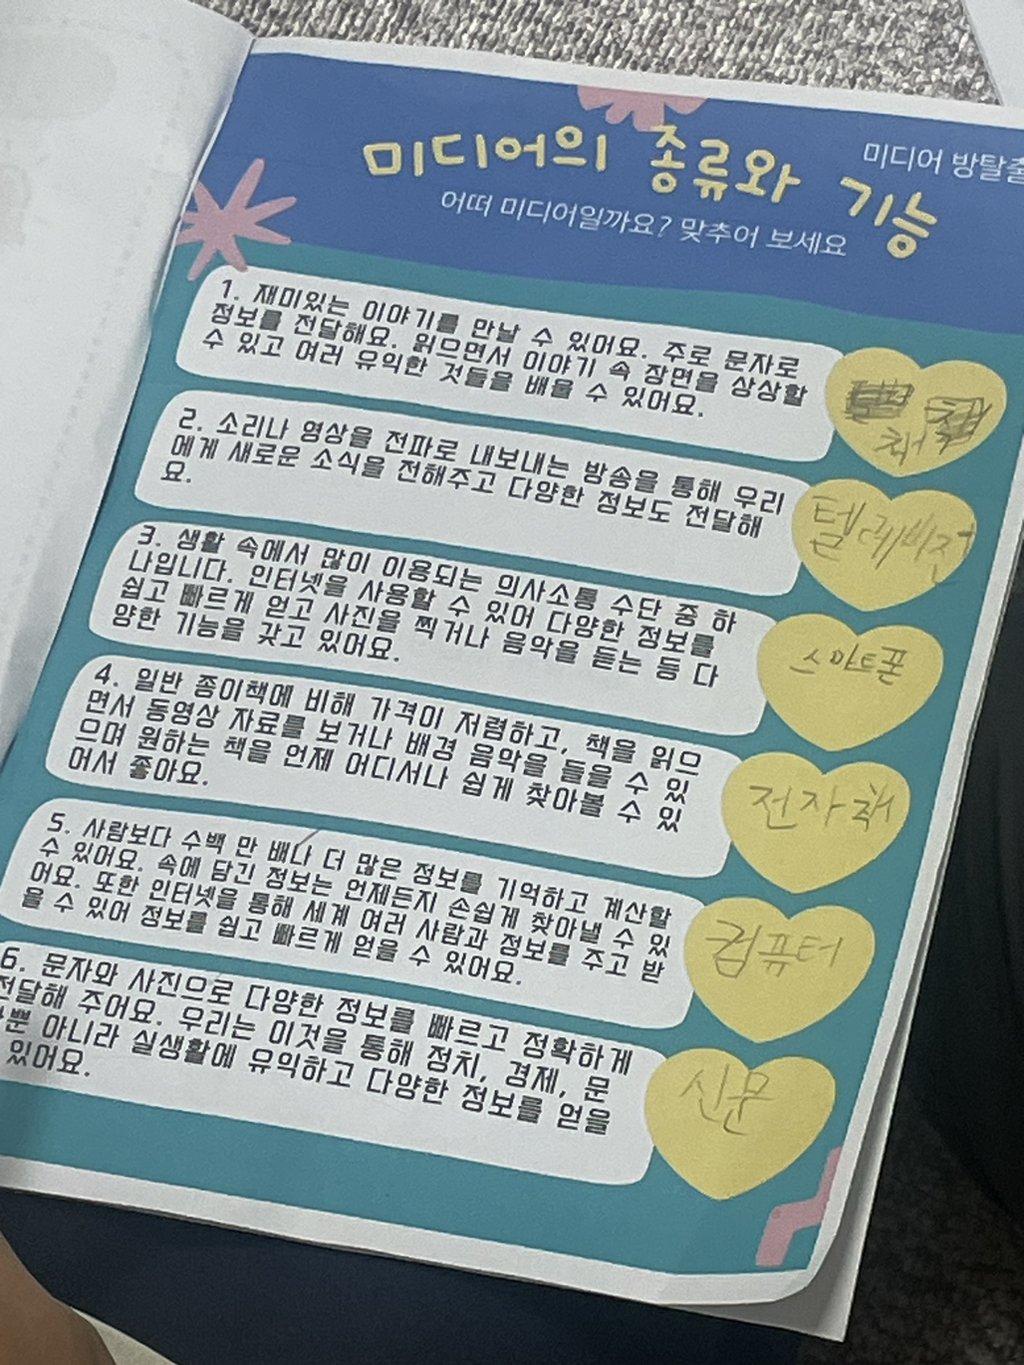 미디어의 종류와 기능
미디어 방탈출
어떠 미디어일까요? 맞추어 보세요
1. 재미있는 이야기를 만날 수 있어요. 주로 문자로
정보를 전달해요. 읽으면서 이야기 속 장면을 상상할
수 있고 여러 유익한 것들을 배울 수 있어요.
책
2. 소리나 영상을 전파로 내보내는 방송을 통해 우리
에게 새로운 소식을 전해주고 다양한 정보도 전달해
요.
텔레비전
3. 생활 속에서 많이 이용되는 의사소통 수단 중 하
나입니다. 인터넷을 사용할 수 있어 다양한 정보를
쉽고 빠르게 얻고 사진을 찍거나 음악을 듣는 등 다
양한 기능을 갖고 있어요.
스마트폰
4. 일반 종이책에 비해 가격이 저렴하고, 책을 읽으
면서 동영상 자료를 보거나 배경 음악을 들을 수 있
으며 원하는 책을 언제 어디서나 쉽게 찾아볼 수 있
어서 좋아요.
전자책
5. 사람보다 수백 만 배나 더 많은 정보를 기억하고 계산할
수 있어요. 속에 담긴 정보는 언제든지 손쉽게 찾아낼 수 있
어요. 또한 인터넷을 통해 세계 여러 사람과 정보를 주고 받
을 수 있어 정보를 쉽고 빠르게 얻을 수 있어요.
컴퓨터
6. 문자와 사진으로 다양한 정보를 빠르고 정확하게
전달해 주어요. 우리는 이것을 통해 정치, 경제, 문
뿐 아니라 실생활에 유익하고 다양한 정보를 얻을
있어요.
신문